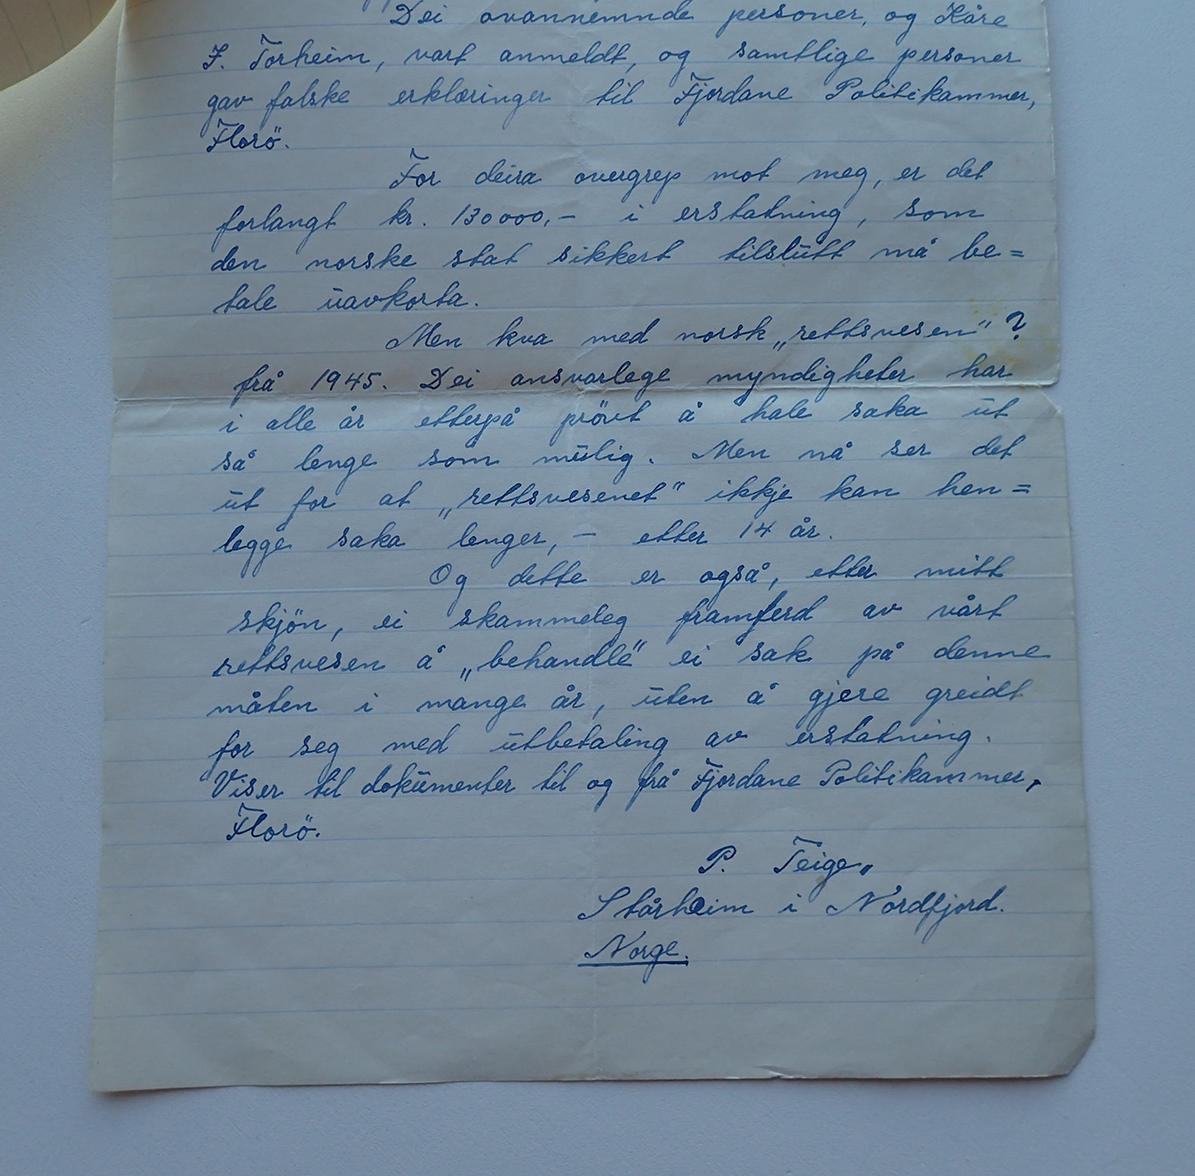 Dei ovannemnde personer, og Kåre
J. Torheim, vart anmeldt, og samtlige personer
gav falske erklæringer til Fjordane Politikammer,
Florö.
For deira overgrep mot meg, er det
forlangt kr. 130000,- i erstatning, som
den norske stat sikkert tilslutt må be=
tale uavkorta.
Men kva med norsk „rettsvesen"?
frå 1945. Dei ansvarlege myndigheter har
i alle år etterpå prövt å hale saka ut
så lenge som mulig. Men nå ser det
ut for at „rettsvesenet" ikkje kan hen=
legge saka lenger, - etter 14 år.
Og dette er også, etter mitt
skjön, ei skammeleg framferd av vårt
rettsvesen å „behandle" ei sak på denne
måten i mange år, uten å gjere greidt
for seg med utbetaling av erstatning.
Viser til dokumenter til og frå Fjordane Politikammer,
Florö.
P. Teige,
Stårheim i Nordfjord.
Norge.